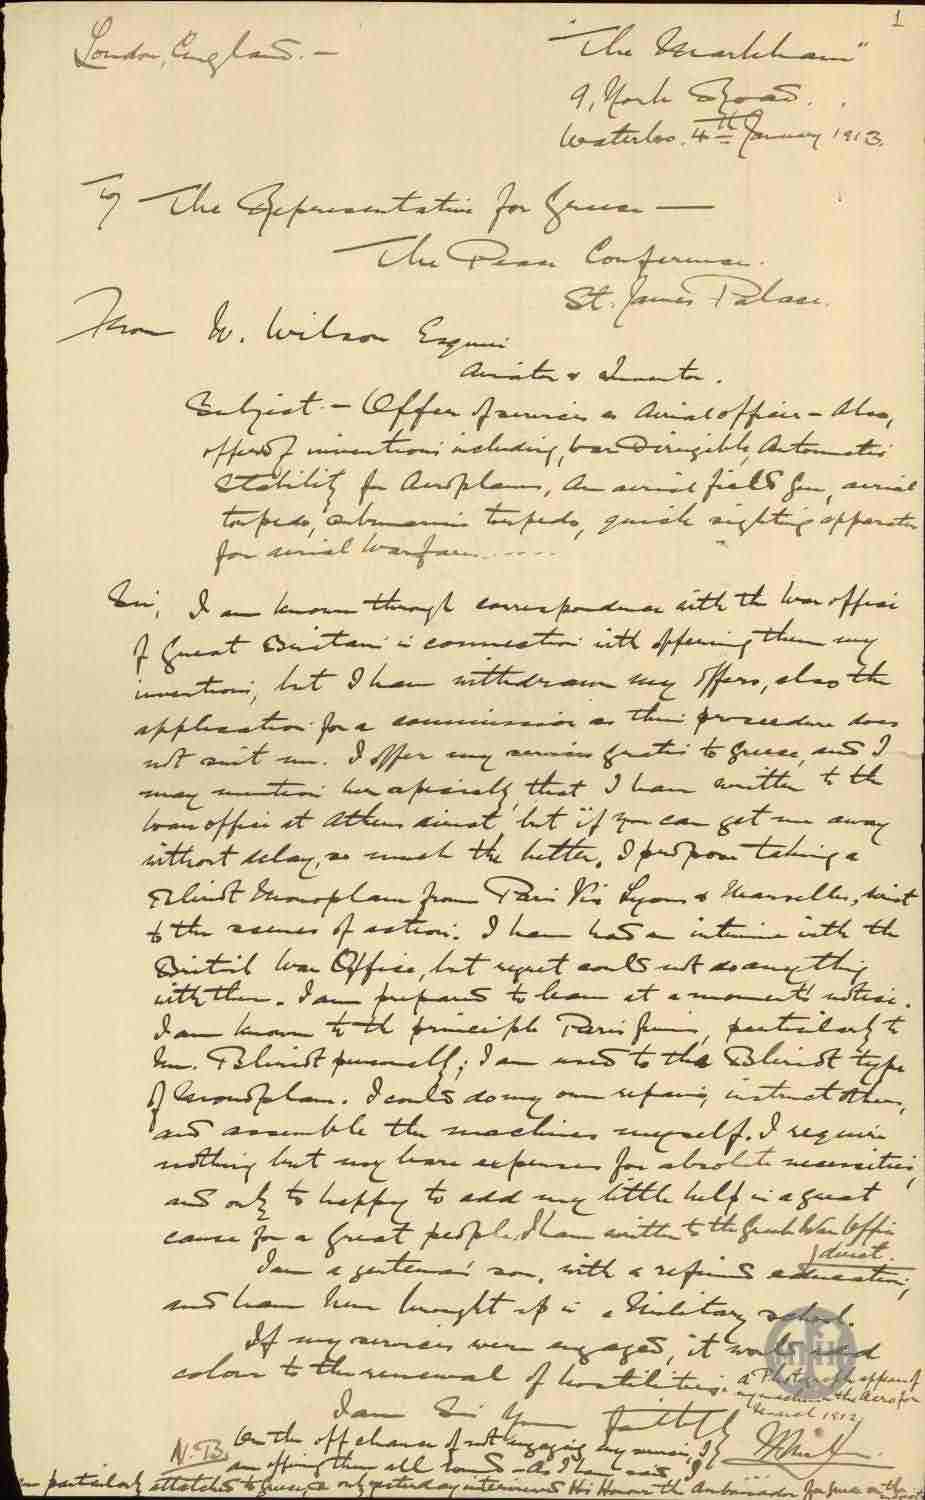 1
London, England. —
"The Markham"
9, York Road.
Waterloo. 4th January 1913.
To The Representative for Greece —
The Peace Conference.
St. James Palace.
From W. Wilson Esquire
Aviator & Inventor.
Subject. — Offer of services as Aerial officer — Also,
offer of inventions including, War Dirigible, Automatic
Stability for Aeroplanes, An aerial field Gun, aerial
torpedo, submarine torpedo, quick sighting apparatus
for aerial warfare.....
Sir, I am known through correspondence with the War office
of Great Britain in connection with offering them my
inventions, but I have withdrawn my offers, also the
application for a commission as their proceedure does
not suit me. I offer my services gratis to Greece, and I
may mention here especially, that I have written to the
War office at Athens direct, but "if you can get me away
without delay, so much the better. I propose taking a
Bleriot Monoplane from Paris Via Lyons & Marseilles, direct
to the scenes of action. I have had an interview with the
British War Office, but regret could not do anything
with them. I am prepared to leave at a moments notice.
I am known to the principle Paris firms, particularly to
Mr. Bleriot personally; I am used to the Bleriot type
of Monoplane. I could do my own repairs, instruct others,
and assemble the machines myself. I require
nothing but my bare expenses for absolute necessities,
and only to happy to add my little help in a great
cause for a great people. I have written to the Greek War Office
direct.
I am a gentleman's son, with a refined education,
and have been brought up in a Military school.
If my services were engaged, it would add
colour to the renewal of hostilities.
a Photograph appears of
my machine in the Aero for
March 1912
I am Sir Yours faithfully
N.B. On the off chance of not engaging my services, I
am offering them all round — As I have said, I
am particularly attached to Greece, & only yesterday interviewed His Honour the Ambassador for Greece on the